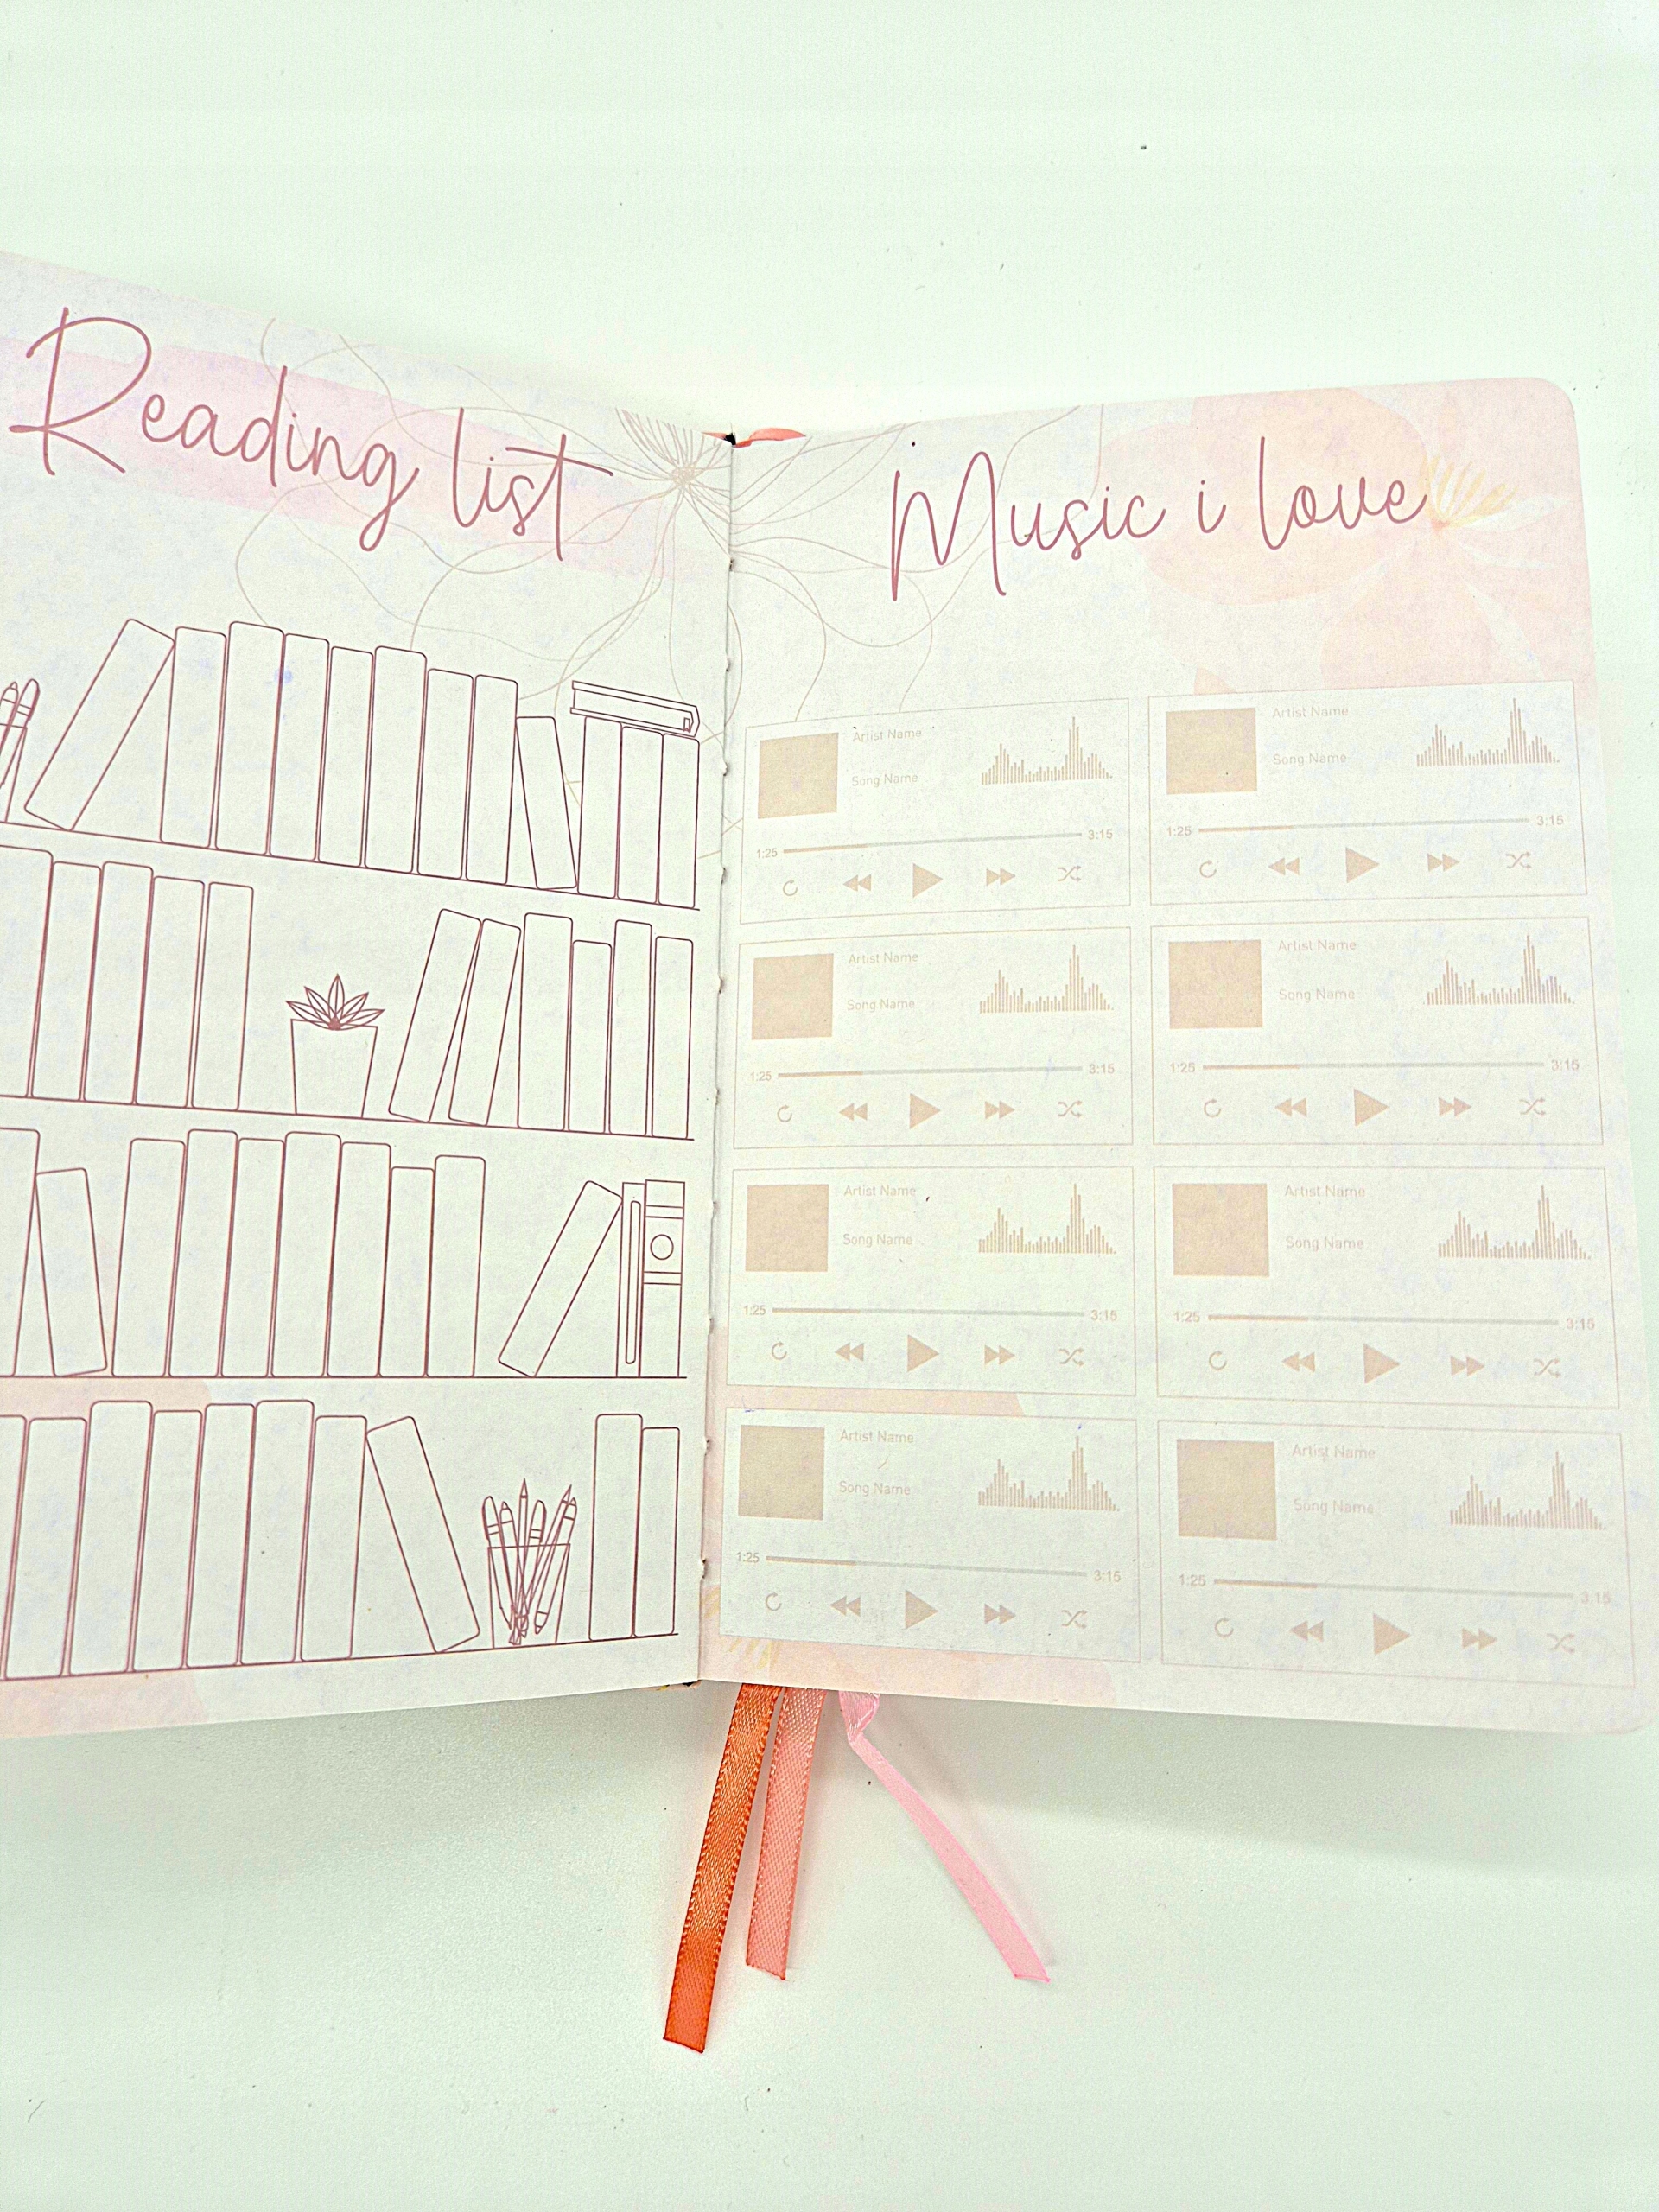 Reading list
Music i love
Artist Name
Song Name
1:25 3:15
Artist Name
Song Name
1:25 3:15
Artist Name
Song Name
1:25 3:15
Artist Name
Song Name
1:25 3:15
Artist Name
Song Name
1:25 3:15
Artist Name
Song Name
1:25 3:15
Artist Name
Song Name
1:25 3:15
Artist Name
Song Name
1:25 3:15